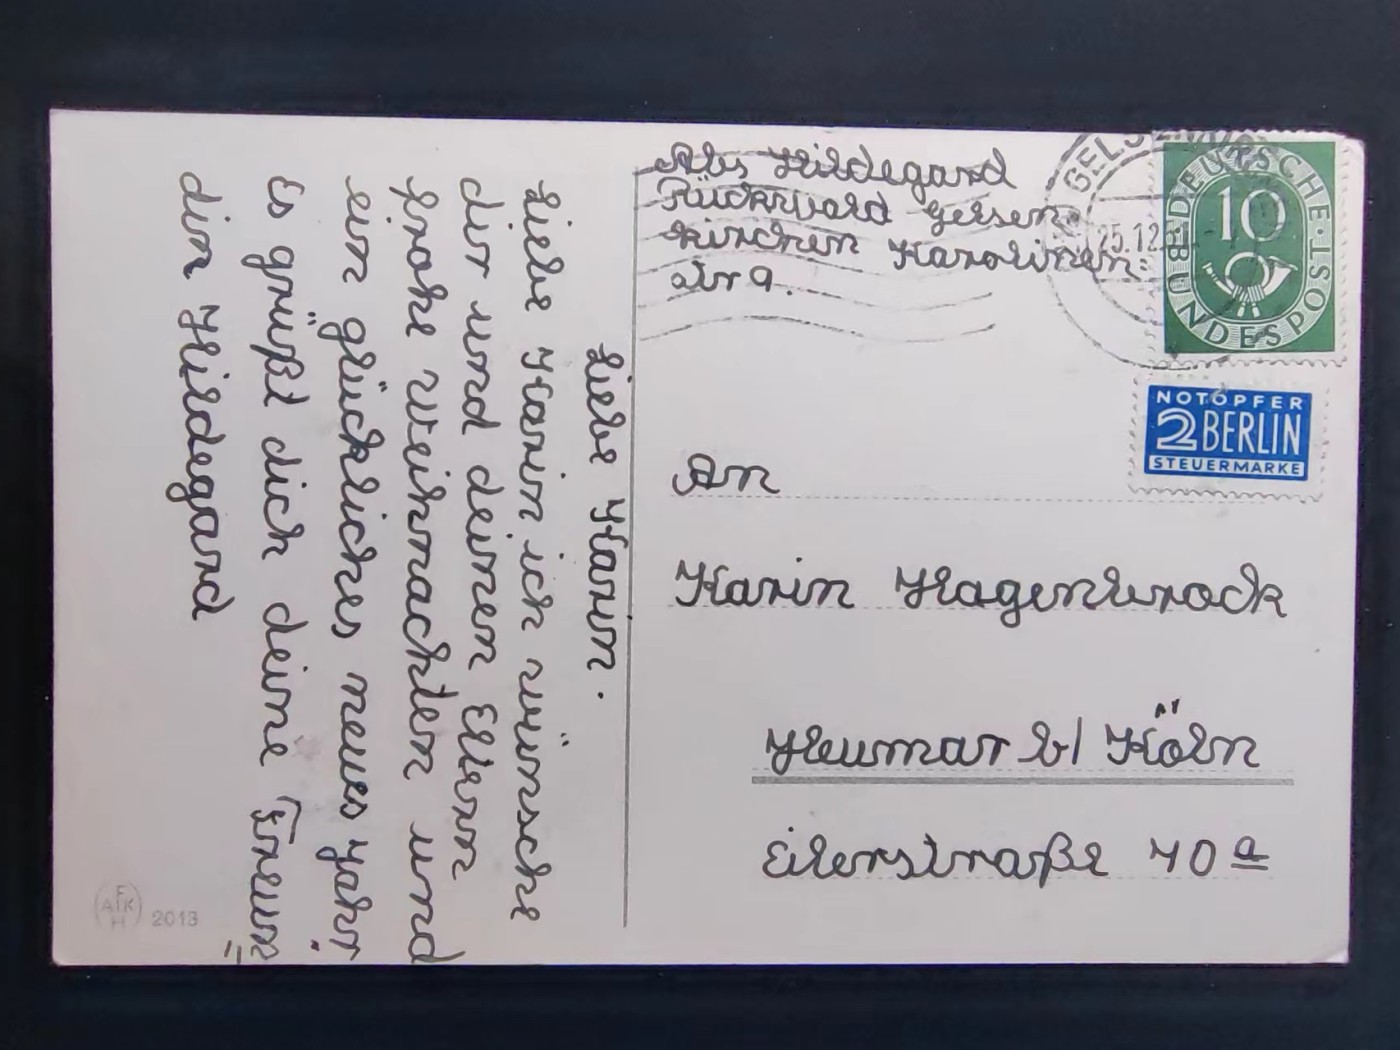 Liebe Karin.
Liebe Karin ich wünsche
dir und deinen Eltern
frohe weihnachten und
ein glückliches neues Jahr
Es grüßt dich deine Freun=
din Hildegard
Abs Hildegard
Rückwald Gelsen
kirchen Karolinen=
str 9.
An
Karin Hagenbrock
Heumar b/ Köln
Eilerstraße 40a
DEUTSCHE
10
BUNDESPOST
NOTOPFER
2 BERLIN
STEUERMARKE
25.12.
AFKH 2013